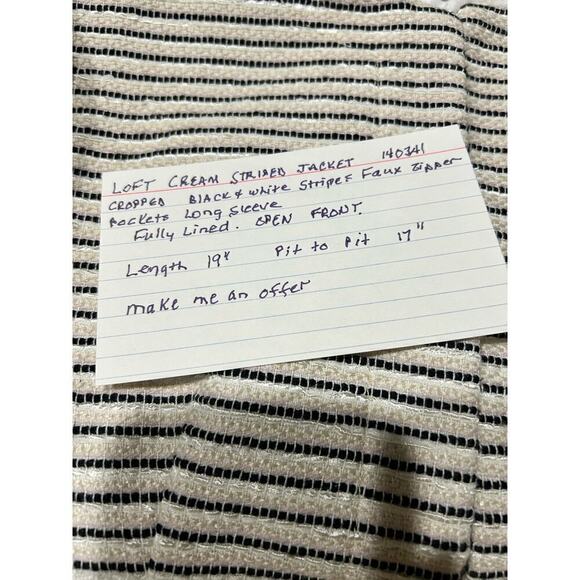 LOFT CREAM STRIPED JACKET 140341
CROPPED BLACK & White Stripes Faux Zipper
Pockets Long Sleeve
Fully Lined. OPEN FRONT.
Length 19" Pit to Pit 17"
make me an offer